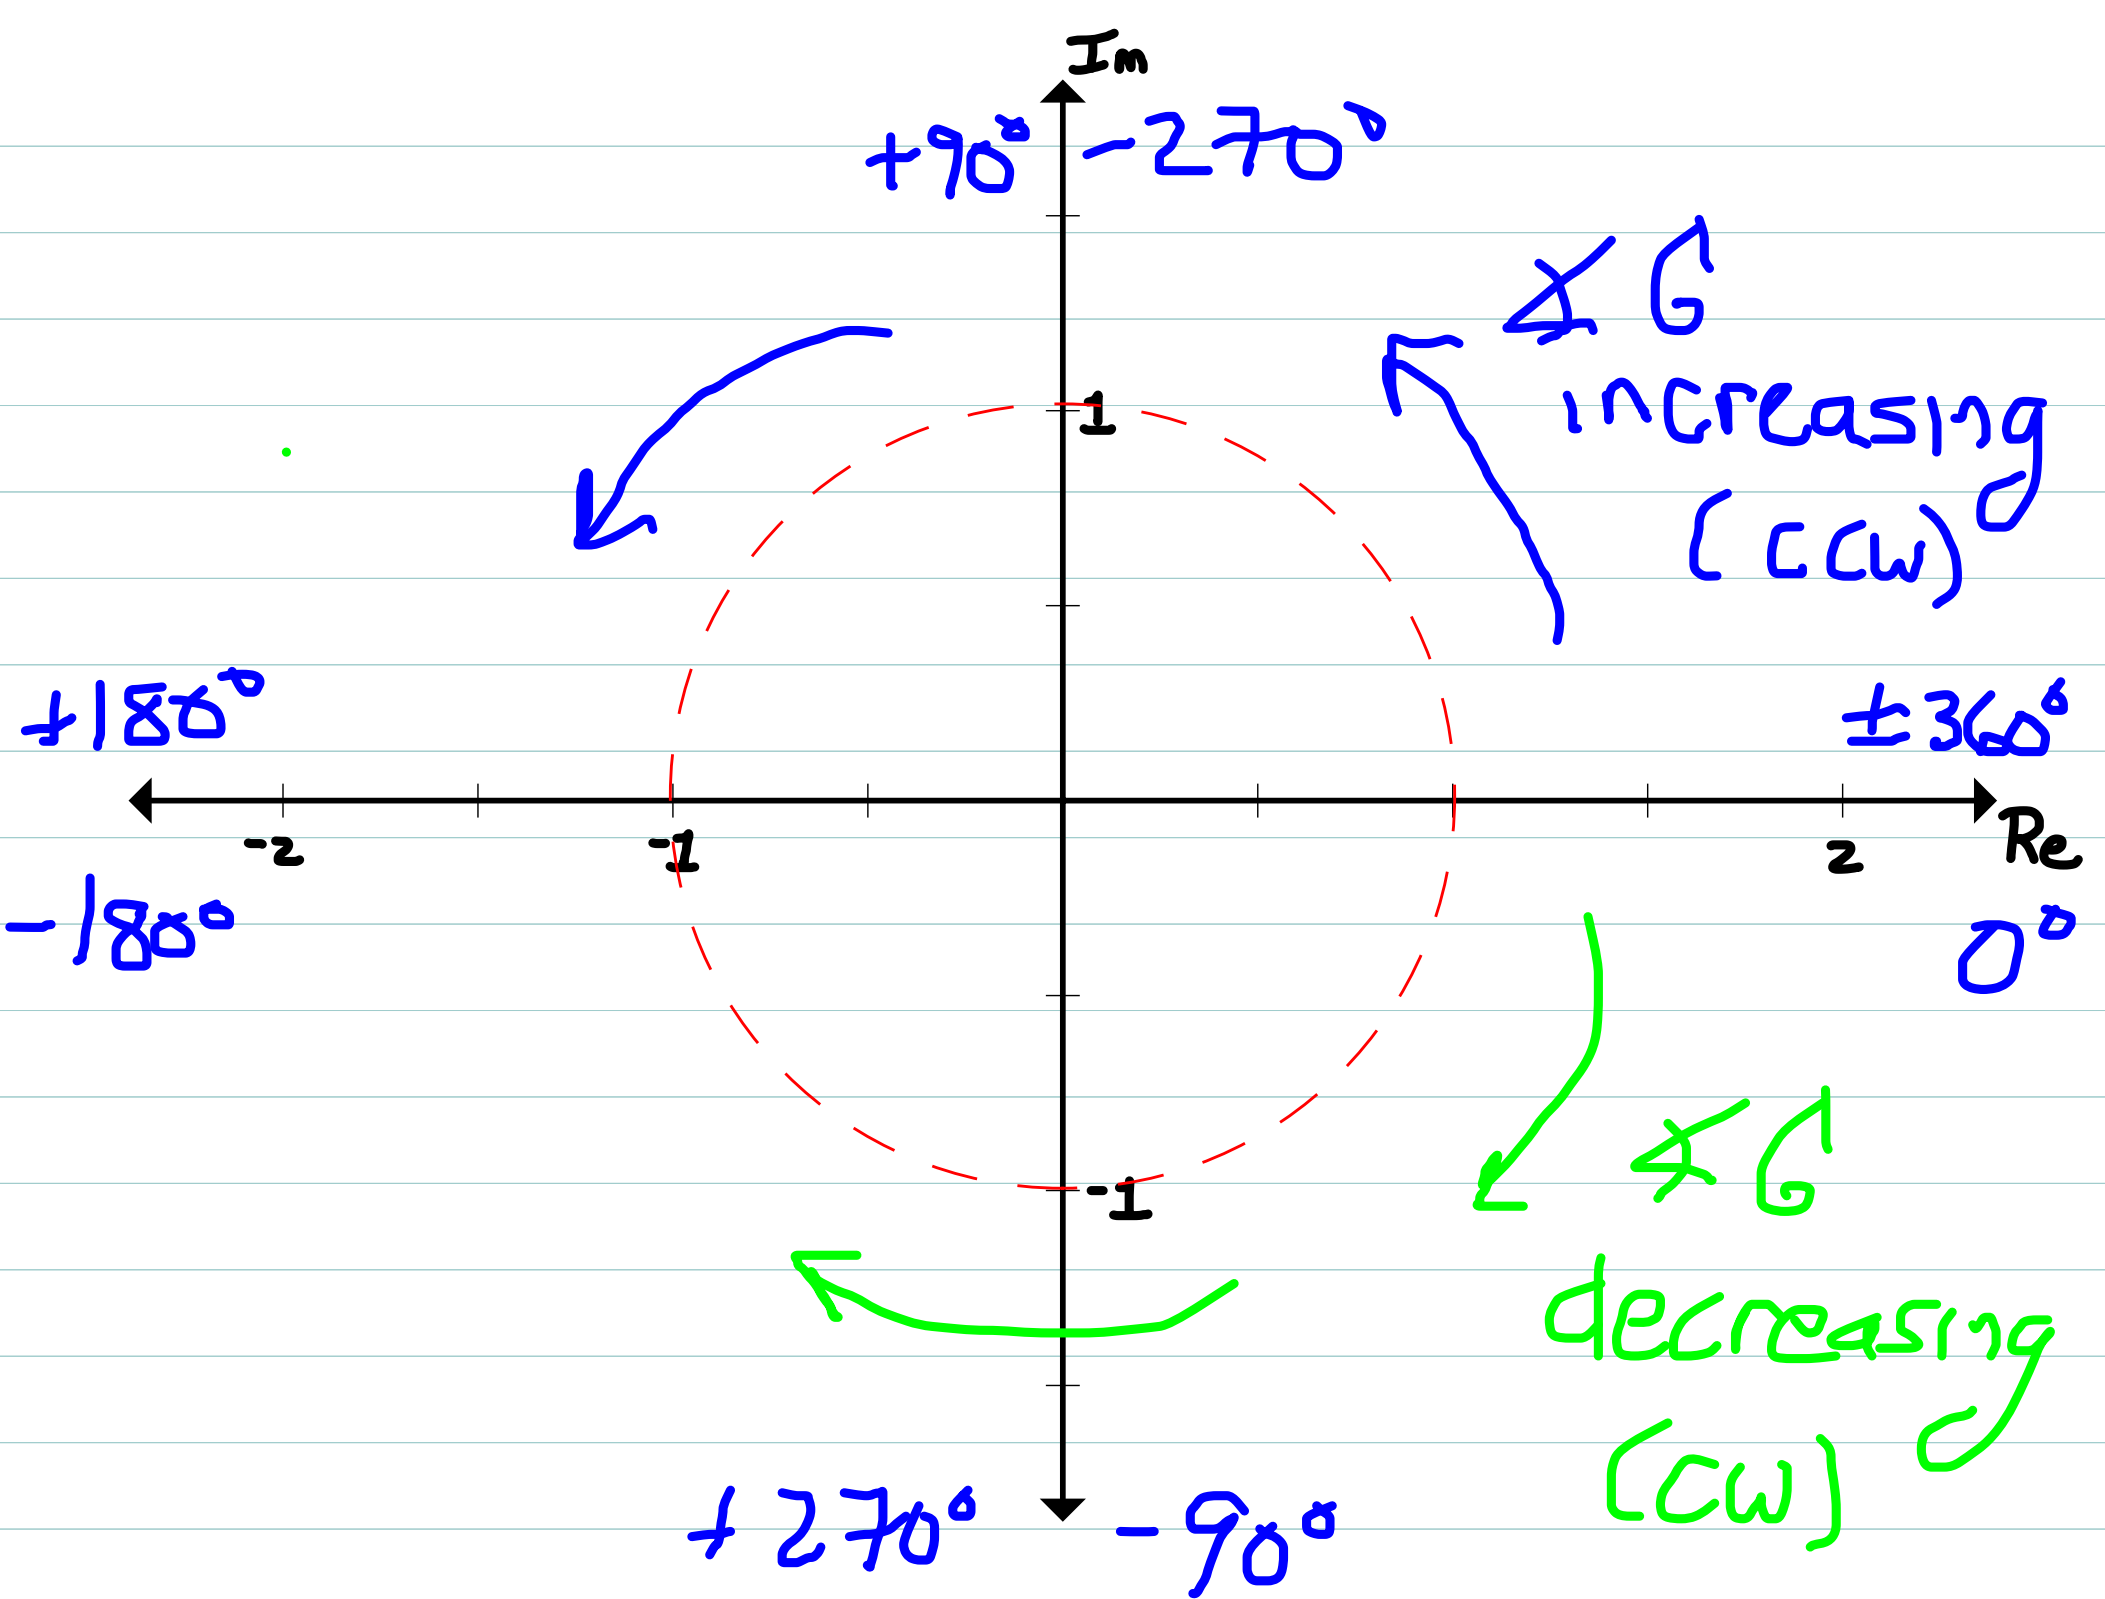 Im
+90° -270°
∡ G
increasing
(CCW)
1
+180°
±360°
-2
-1
2
Re
-180°
0°
∡ G
-1
decreasing
(CW)
+270° -90°